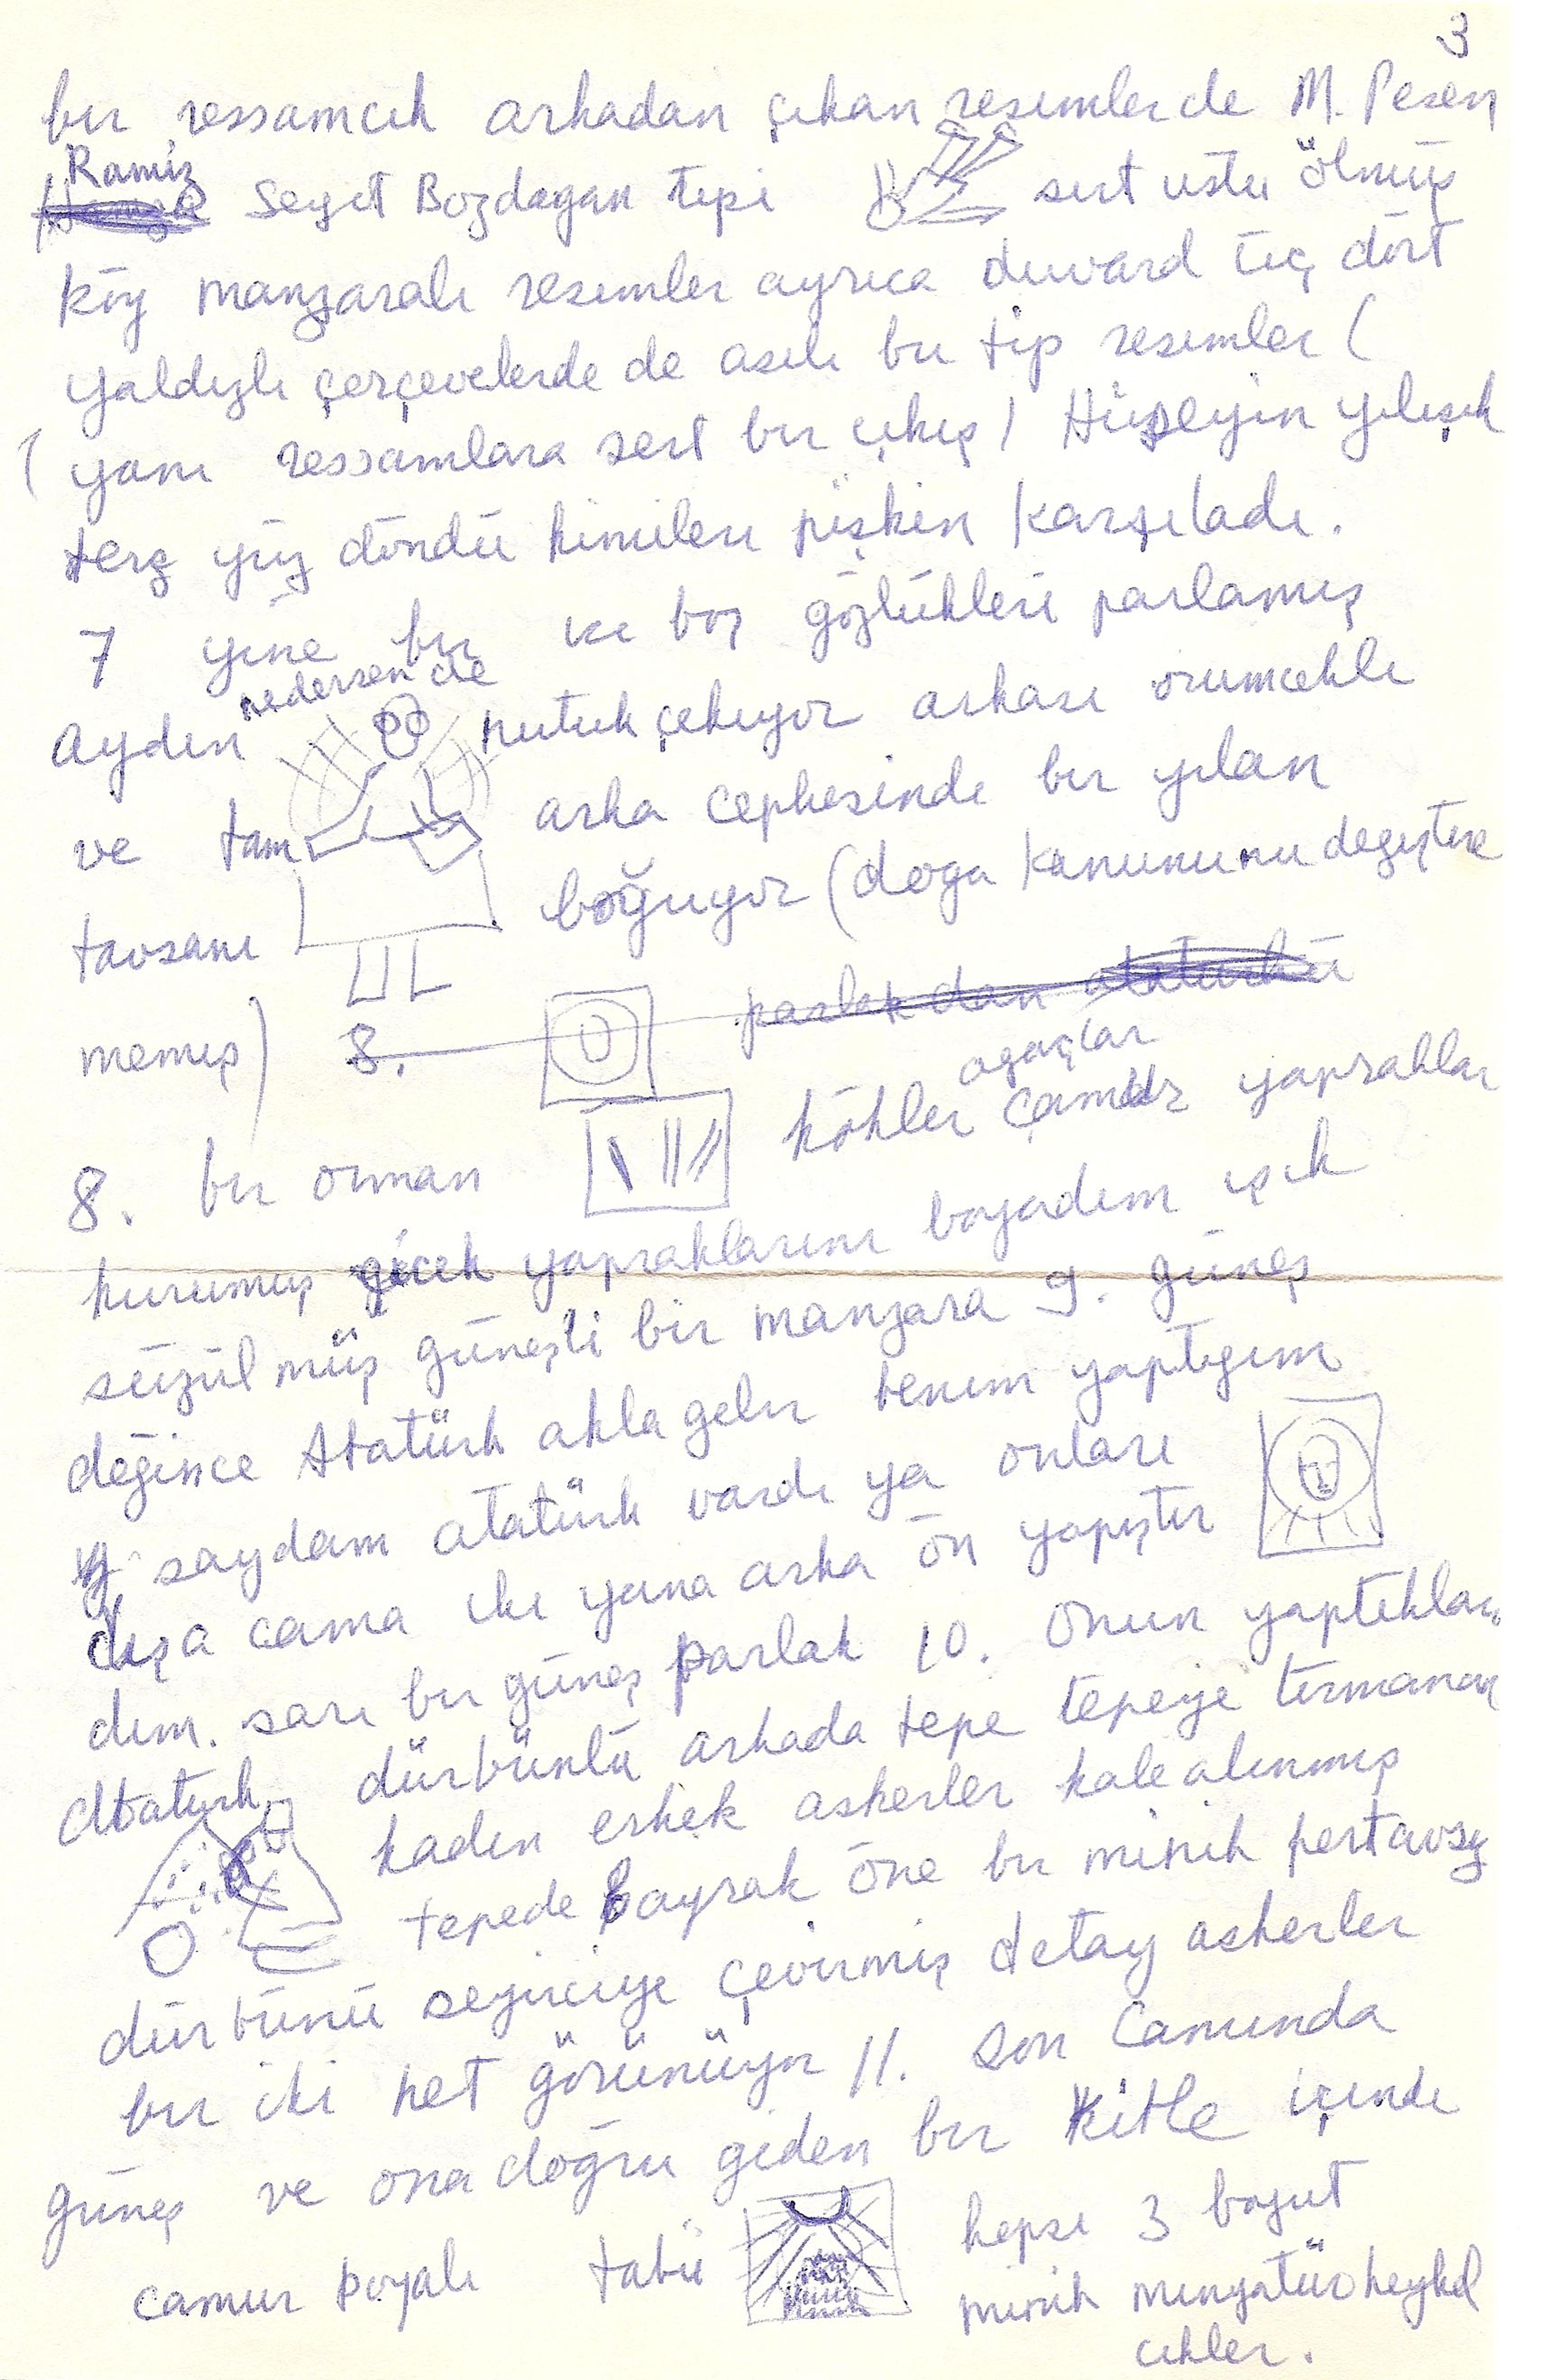 3
bir ressamcık arkadan çıkan resimlerde M. Pesen
Ramiz
Seyit Bozdagan tipi sırt üstü ölmüş
köy manzaralı resimler ayrıca duvard üç dört
yaldızlı çerçevelerde de asılı bu tip resimler (
( yani ressamlara sert bir çıkış ) Hüseyin yılışık
terz yüz döndü kimileri pişkin karşıladı.
7 yine bir iki boş gözlükleri parlamış
nedersen de
aydın nutuk çekiyor arkası örümcekli
ve tam arka cephesinde bir yılan
tavsanı boğuyor (doga kanununu degiştire
memiş) 8. parlakdan atatürkü
agaçlar
8. bir orman kökler çamur yapraklar
kurumuş çicek yapraklarını boyadım ışık
süzülmüş güneşli bir manzara 9. güneş
değince Atatürk akla gelir benim yaptıgım
saydam atatürk vardı ya onları
dışa cama iki yana arka ön yapıştır
dım. sarı bir güneş parlak 10. onun yaptıkları
Atatürk dürbünlü arkada tepe tepeye tırmanan
kadın erkek askerler kale alınmış
tepede bayrak öne bir minik pertavsız
dürbünü seyirciye çevirmiş detay askerler
bir iki net görünüyor 11. son camında
güneş ve ona doğru giden bir kitle içinde
camur boyalı tabii hepsi 3 boyut
minik minyatür heykel
cikler.